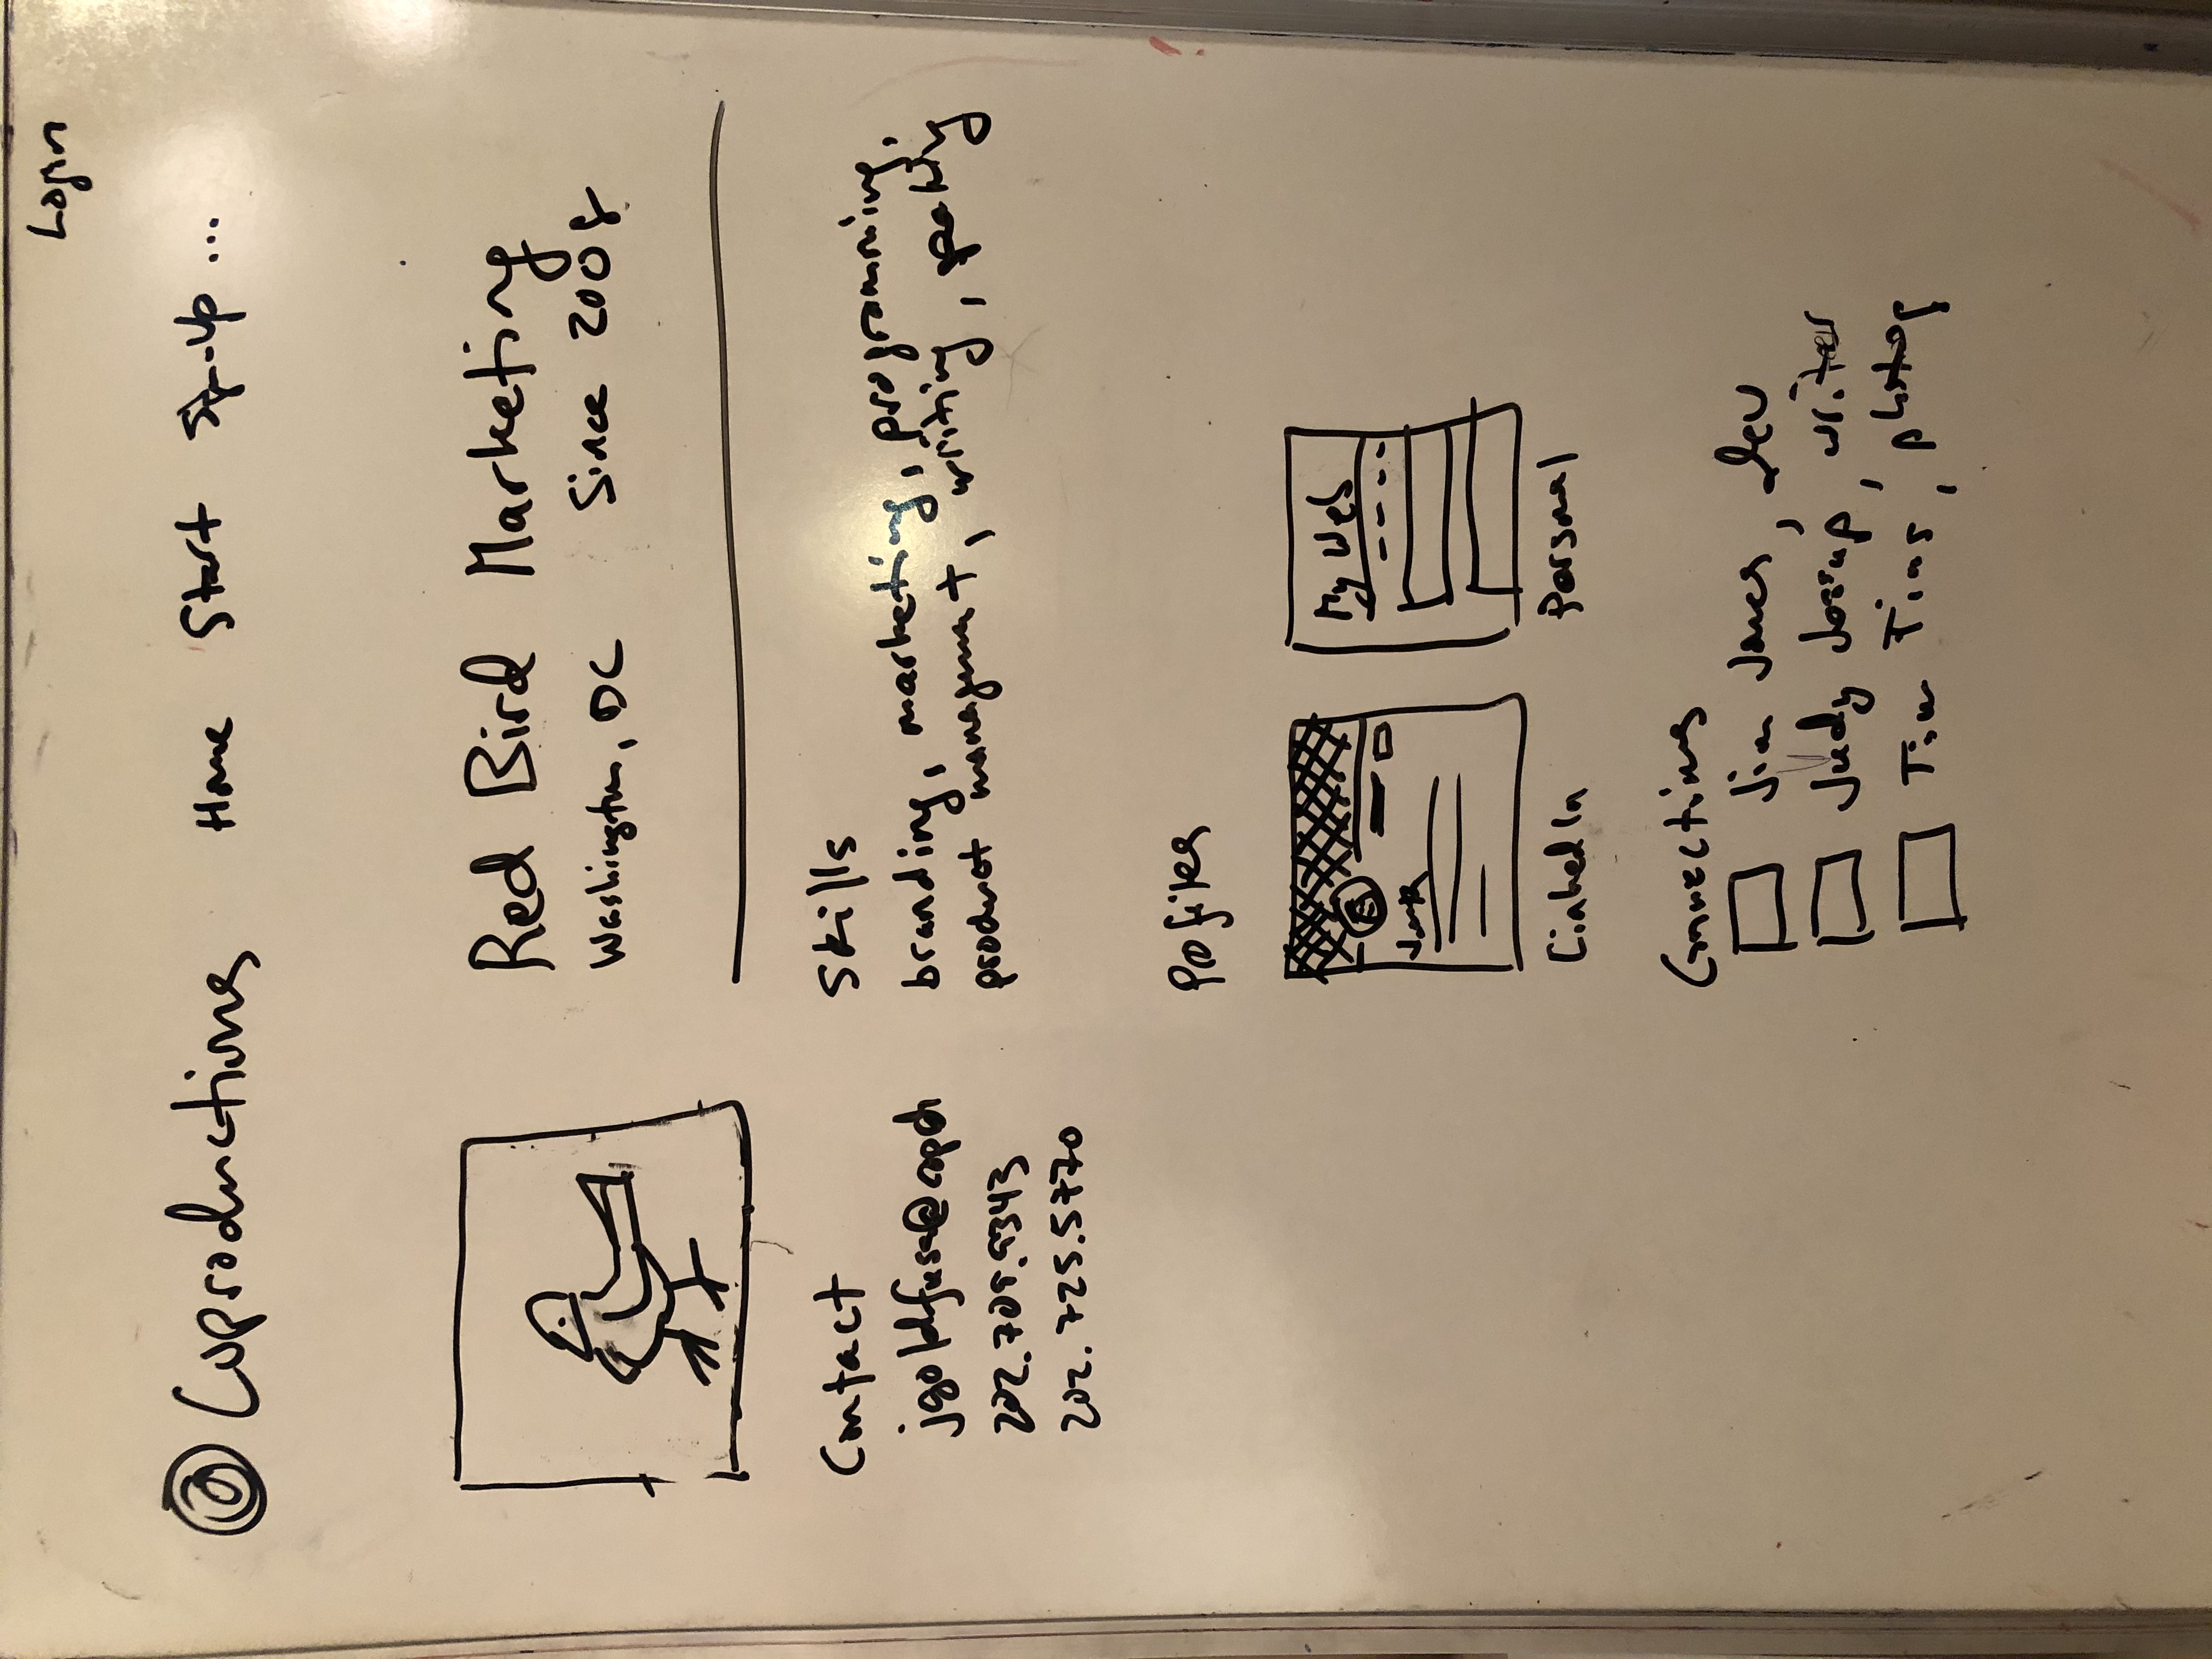 Login
Coproductions Home Start Sign-Up ...
Red Bird Marketing
Washington, DC Since 2008
Contact
202.725.5770
Skills
branding, marketing, programming,
product management, writing,
Profiles
My Web
LinkedIn Personal
Connections
Jim Jones, dev
Judy writer
Tim Tims, photog